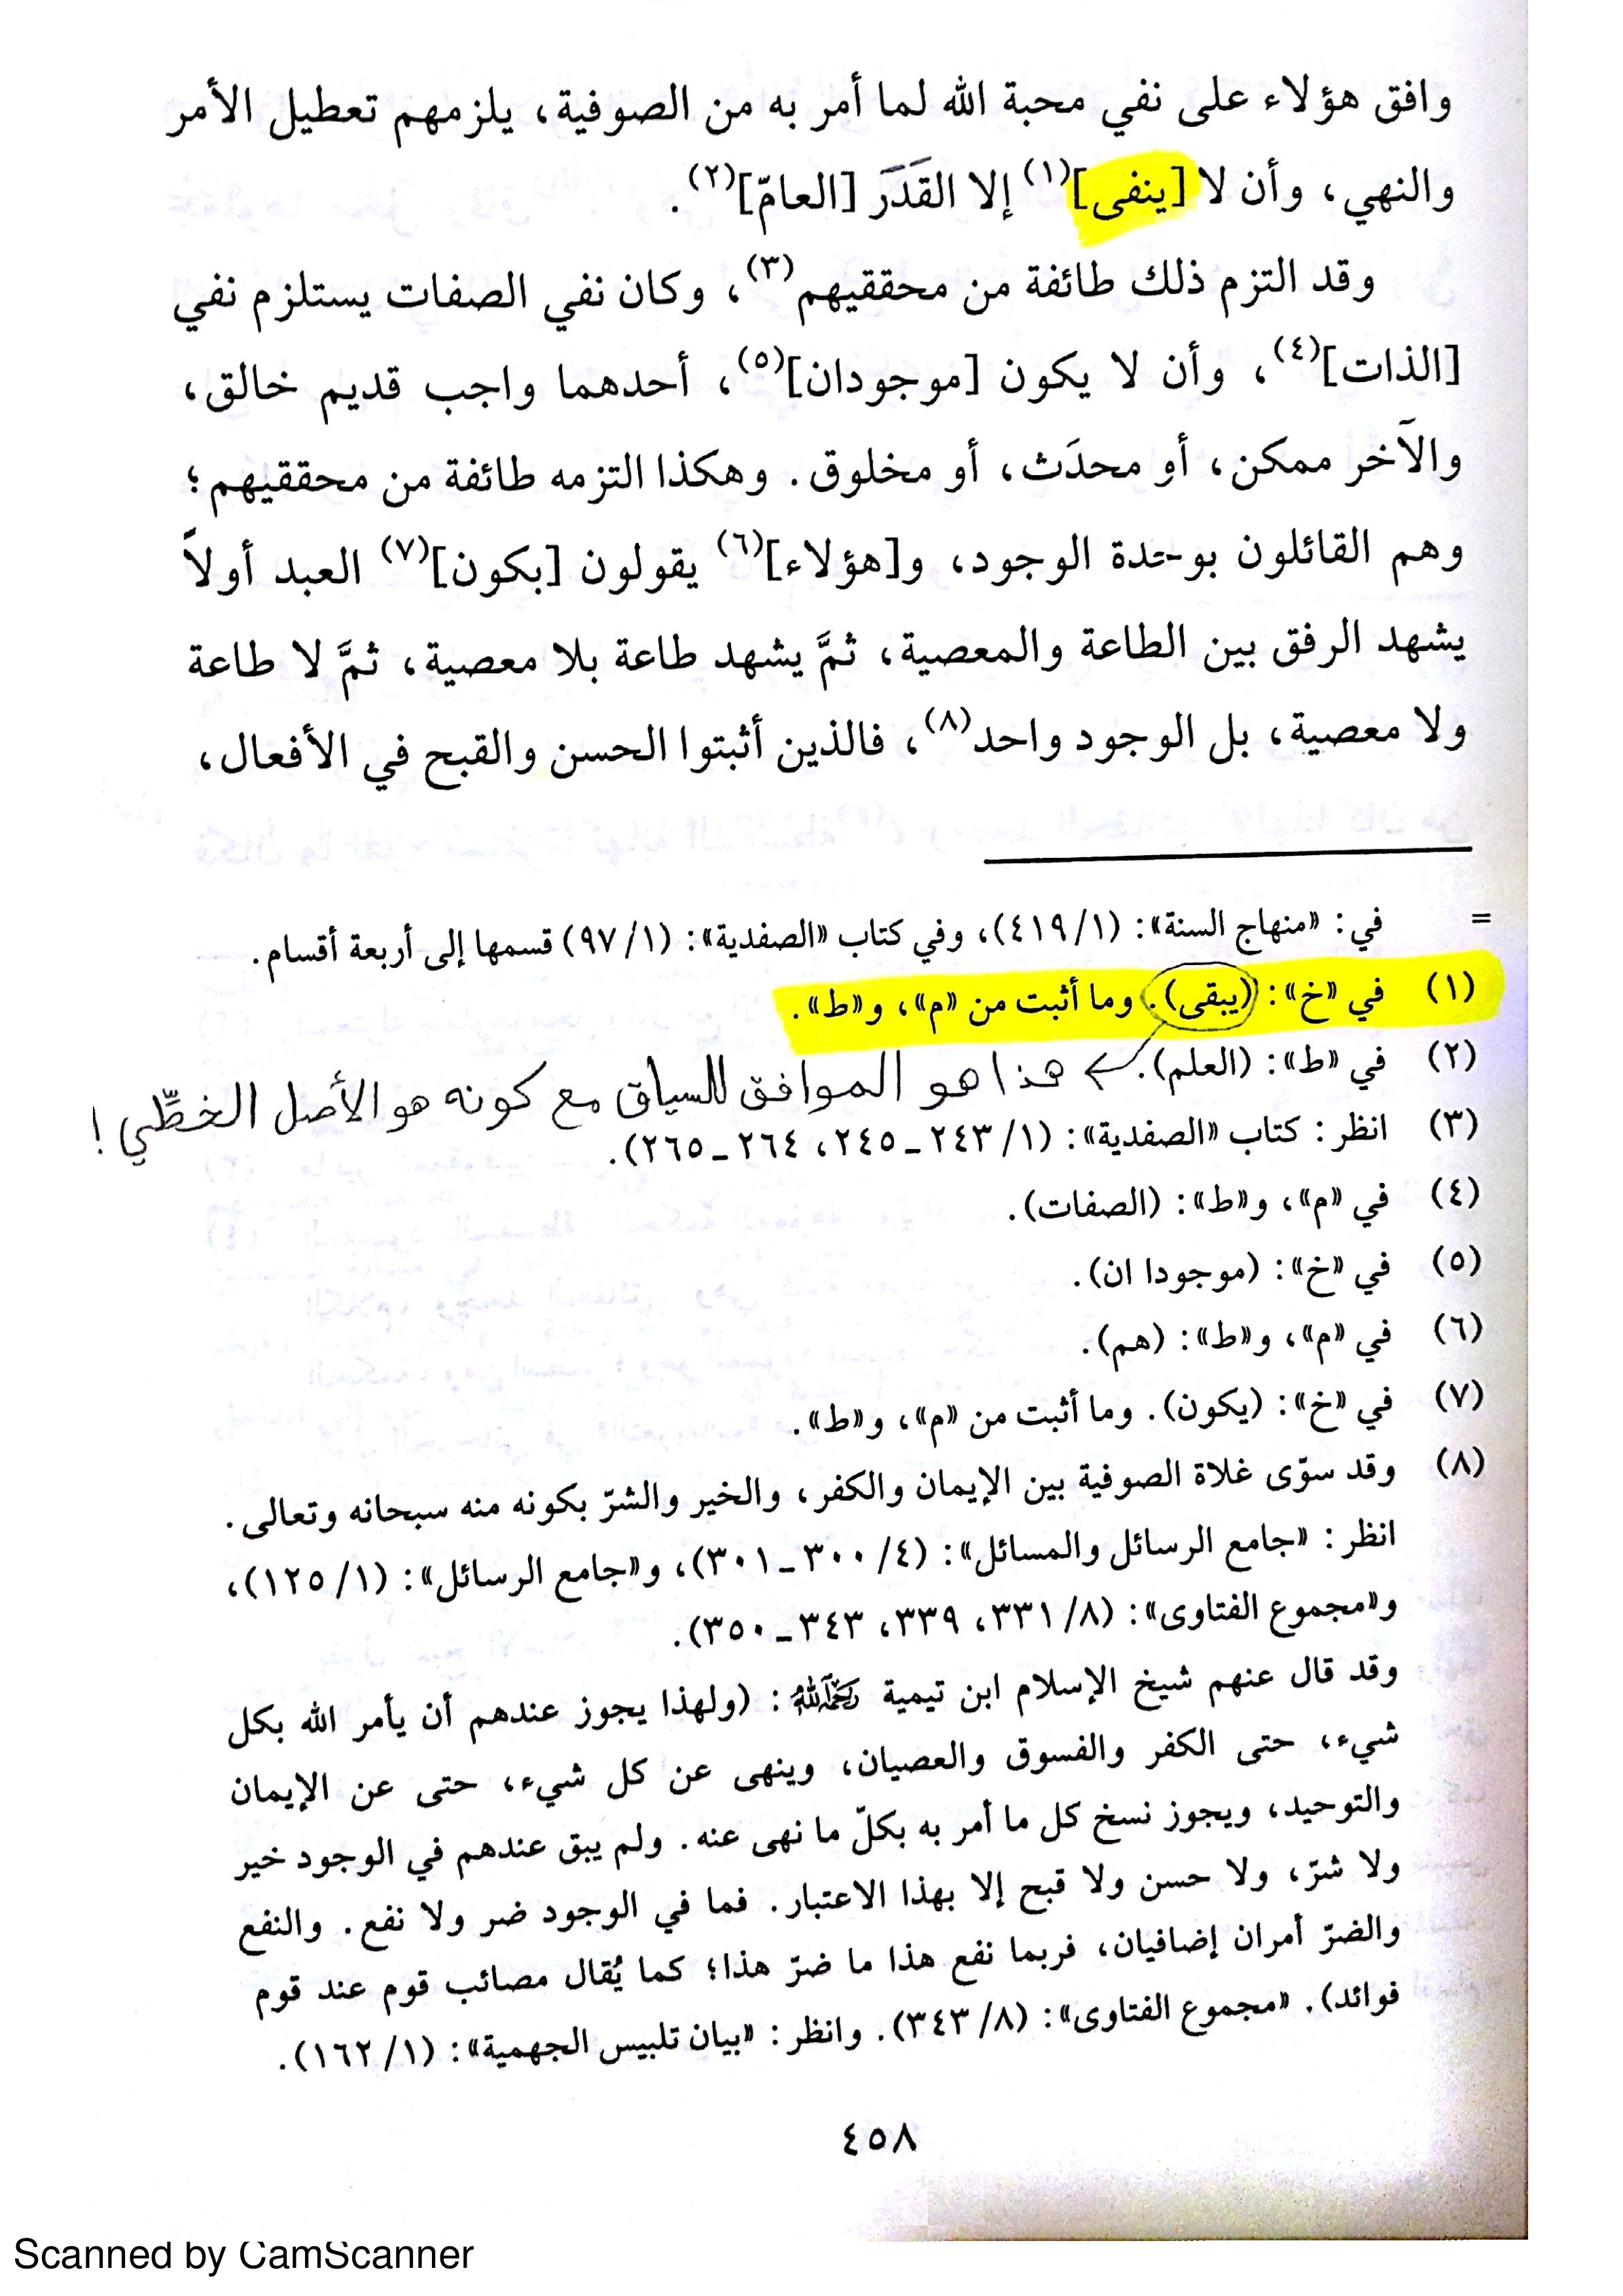 وافق هؤلاء على نفي محبة الله لما أمر به من الصوفية، يلزمهم تعطيل الأمر
والنهي، وأن لا [ينفى](١) إلا القَدَرَ [العامّ](٢).
وقد التزم ذلك طائفة من محققيهم(٣)، وكان نفي الصفات يستلزم نفي
[الذات](٤)، وأن لا يكون [موجودان](٥)، أحدهما واجب قديم خالق،
والآخر ممكن، أو محدَث، أو مخلوق. وهكذا التزمه طائفة من محققيهم؛
وهم القائلون بوحدة الوجود، و[هؤلاء](٦) يقولون [بكون](٧) العبد أولاً
يشهد الرفق بين الطاعة والمعصية، ثمَّ يشهد طاعة بلا معصية، ثمَّ لا طاعة
ولا معصية، بل الوجود واحد(٨)، فالذين أثبتوا الحسن والقبح في الأفعال،
= في: «منهاج السنة»: (٤١٩/١)، وفي كتاب «الصفدية»: (٩٧/١) قسمها إلى أربعة أقسام.
(١) في «خ»: (يبقى). وما أثبت من «م»، و«ط».
(٢) في «ط»: (العلم).
هذا هو الموافق للسياق مع كونه هو الأصل الخطّي!
(٣) انظر: كتاب «الصفدية»: (٢٤٣/١ ـ ٢٤٥، ٢٦٤ ـ ٢٦٥).
(٤) في «م»، و«ط»: (الصفات).
(٥) في «خ»: (موجودا ان).
(٦) في «م»، و«ط»: (هم).
(٧) في «خ»: (يكون). وما أثبت من «م»، و«ط».
(٨) وقد سوّى غلاة الصوفية بين الإيمان والكفر، والخير والشرّ بكونه منه سبحانه وتعالى.
انظر: «جامع الرسائل والمسائل»: (٣٠٠/٤ ـ ٣٠١)، و«جامع الرسائل»: (١٢٥/١)،
و«مجموع الفتاوى»: (٣٣١/٨، ٣٣٩، ٣٤٣ ـ ٣٥٠).
وقد قال عنهم شيخ الإسلام ابن تيمية رَحِمَهُ اللهُ: (ولهذا يجوز عندهم أن يأمر الله بكل
شيء، حتى الكفر والفسوق والعصيان، وينهى عن كل شيء، حتى عن الإيمان
والتوحيد، ويجوز نسخ كل ما أمر به بكلّ ما نهى عنه. ولم يبق عندهم في الوجود خير
ولا شرّ، ولا حسن ولا قبح إلا بهذا الاعتبار. فما في الوجود ضر ولا نفع. والنفع
والضرّ أمران إضافيان، فربما نفع هذا ما ضرّ هذا؛ كما يُقال مصائب قوم عند قوم
فوائد). «مجموع الفتاوى»: (٣٤٣/٨). وانظر: «بيان تلبيس الجهمية»: (١٦٢/١).
٤٥٨
Scanned by CamScanner